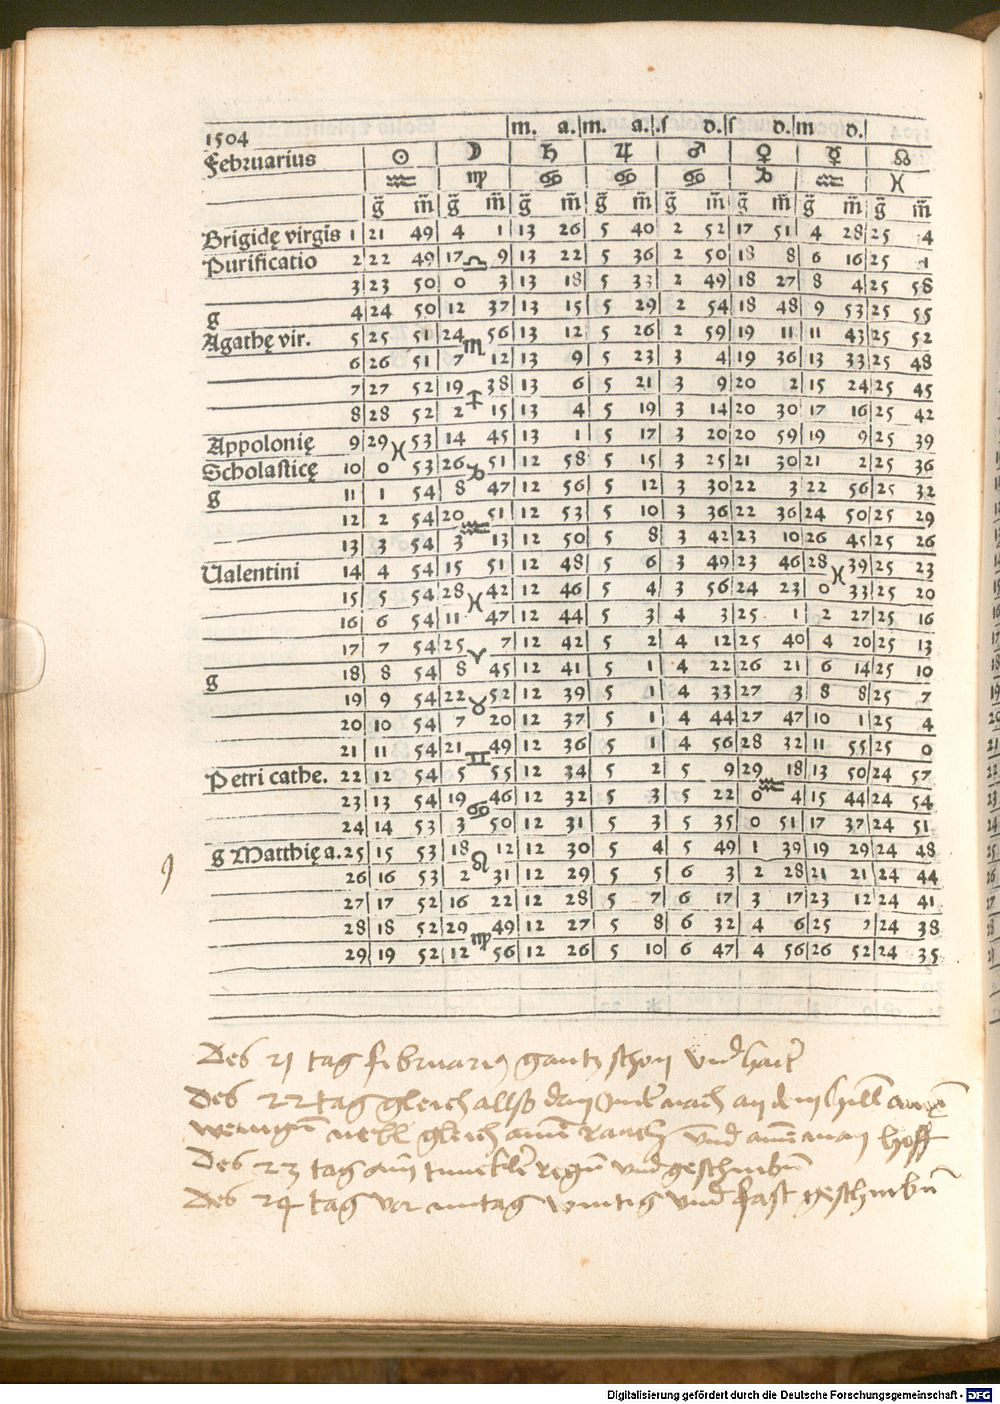 1504 m. a. m. a. s d. s d. m d.
Februarius ☉ ☽ ♄ ♃ ♂ ♀ ☿ ☊
♒ ♍ ♋ ♋ ♋ ♑ ♒ ♓
g̃ m̃ g̃ m̃ g̃ m̃ g̃ m̃ g̃ m̃ g̃ m̃ g̃ m̃ g̃ m̃
Brigidę virgis 1 21 49 4 1 13 26 5 40 2 52 17 51 4 28 25 4
Purificatio 2 22 49 17 ♎ 9 13 22 5 36 2 50 18 8 6 16 25 1
3 23 50 0 3 13 18 5 33 2 49 18 27 8 4 25 58
g 4 24 50 12 37 13 15 5 29 2 54 18 48 9 53 25 55
Agathę vir. 5 25 51 24 ♏ 56 13 12 5 26 2 59 19 11 11 43 25 52
6 26 51 7 12 13 9 5 23 3 4 19 36 13 33 25 48
7 27 52 19 ♐ 38 13 6 5 21 3 9 20 2 15 24 25 45
8 28 52 2 15 13 4 5 19 3 14 20 30 17 16 25 42
Appolonię 9 29 ♓ 53 14 45 13 1 5 17 3 20 20 59 19 9 25 39
Scholasticę 10 0 53 26 ♑ 51 12 58 5 15 3 25 21 30 21 2 25 36
g 11 1 54 8 47 12 56 5 12 3 30 22 3 22 56 25 32
12 2 54 20 ♒ 51 12 53 5 10 3 36 22 36 24 50 25 29
13 3 54 3 13 12 50 5 8 3 42 23 10 26 45 25 26
Ualentini 14 4 54 15 51 12 48 5 6 3 49 23 46 28 ♓ 39 25 23
15 5 54 28 ♓ 42 12 46 5 4 3 56 24 23 0 33 25 20
16 6 54 11 47 12 44 5 3 4 3 25 1 2 27 25 16
17 7 54 25 ♈ 7 12 42 5 2 4 12 25 40 4 20 25 13
g 18 8 54 8 45 12 41 5 1 4 22 26 21 6 14 25 10
19 9 54 22 ♉ 52 12 39 5 1 4 33 27 3 8 8 25 7
20 10 54 7 20 12 37 5 1 4 44 27 47 10 1 25 4
21 11 54 21 ♊ 49 12 36 5 1 4 56 28 32 11 55 25 0
Petri cathe. 22 12 54 5 55 12 34 5 2 5 9 29 ♒ 18 13 50 24 57
23 13 54 19 ♋ 46 12 32 5 3 5 22 0 4 15 44 24 54
24 14 53 3 50 12 31 5 3 5 35 0 51 17 37 24 51
g Matthię a. 25 15 53 18 ♌ 12 12 30 5 4 5 49 1 39 19 29 24 48
26 16 53 2 31 12 29 5 5 6 3 2 28 21 21 24 44
27 17 52 16 22 12 28 5 7 6 17 3 17 23 12 24 41
28 18 52 29 ♍ 49 12 27 5 8 6 32 4 6 25 2 24 38
29 19 52 12 56 12 26 5 10 6 47 4 56 26 52 24 35
Des 21 tag februarius gantz schon und haiter
Des 22 tag gleich allso nach an dem
nebl gleich und
Des 23 tag tunckler regen und
Des 24 tag vor mittag wintig und fast
Digitalisierung gefördert durch die Deutsche Forschungsgemeinschaft - DFG